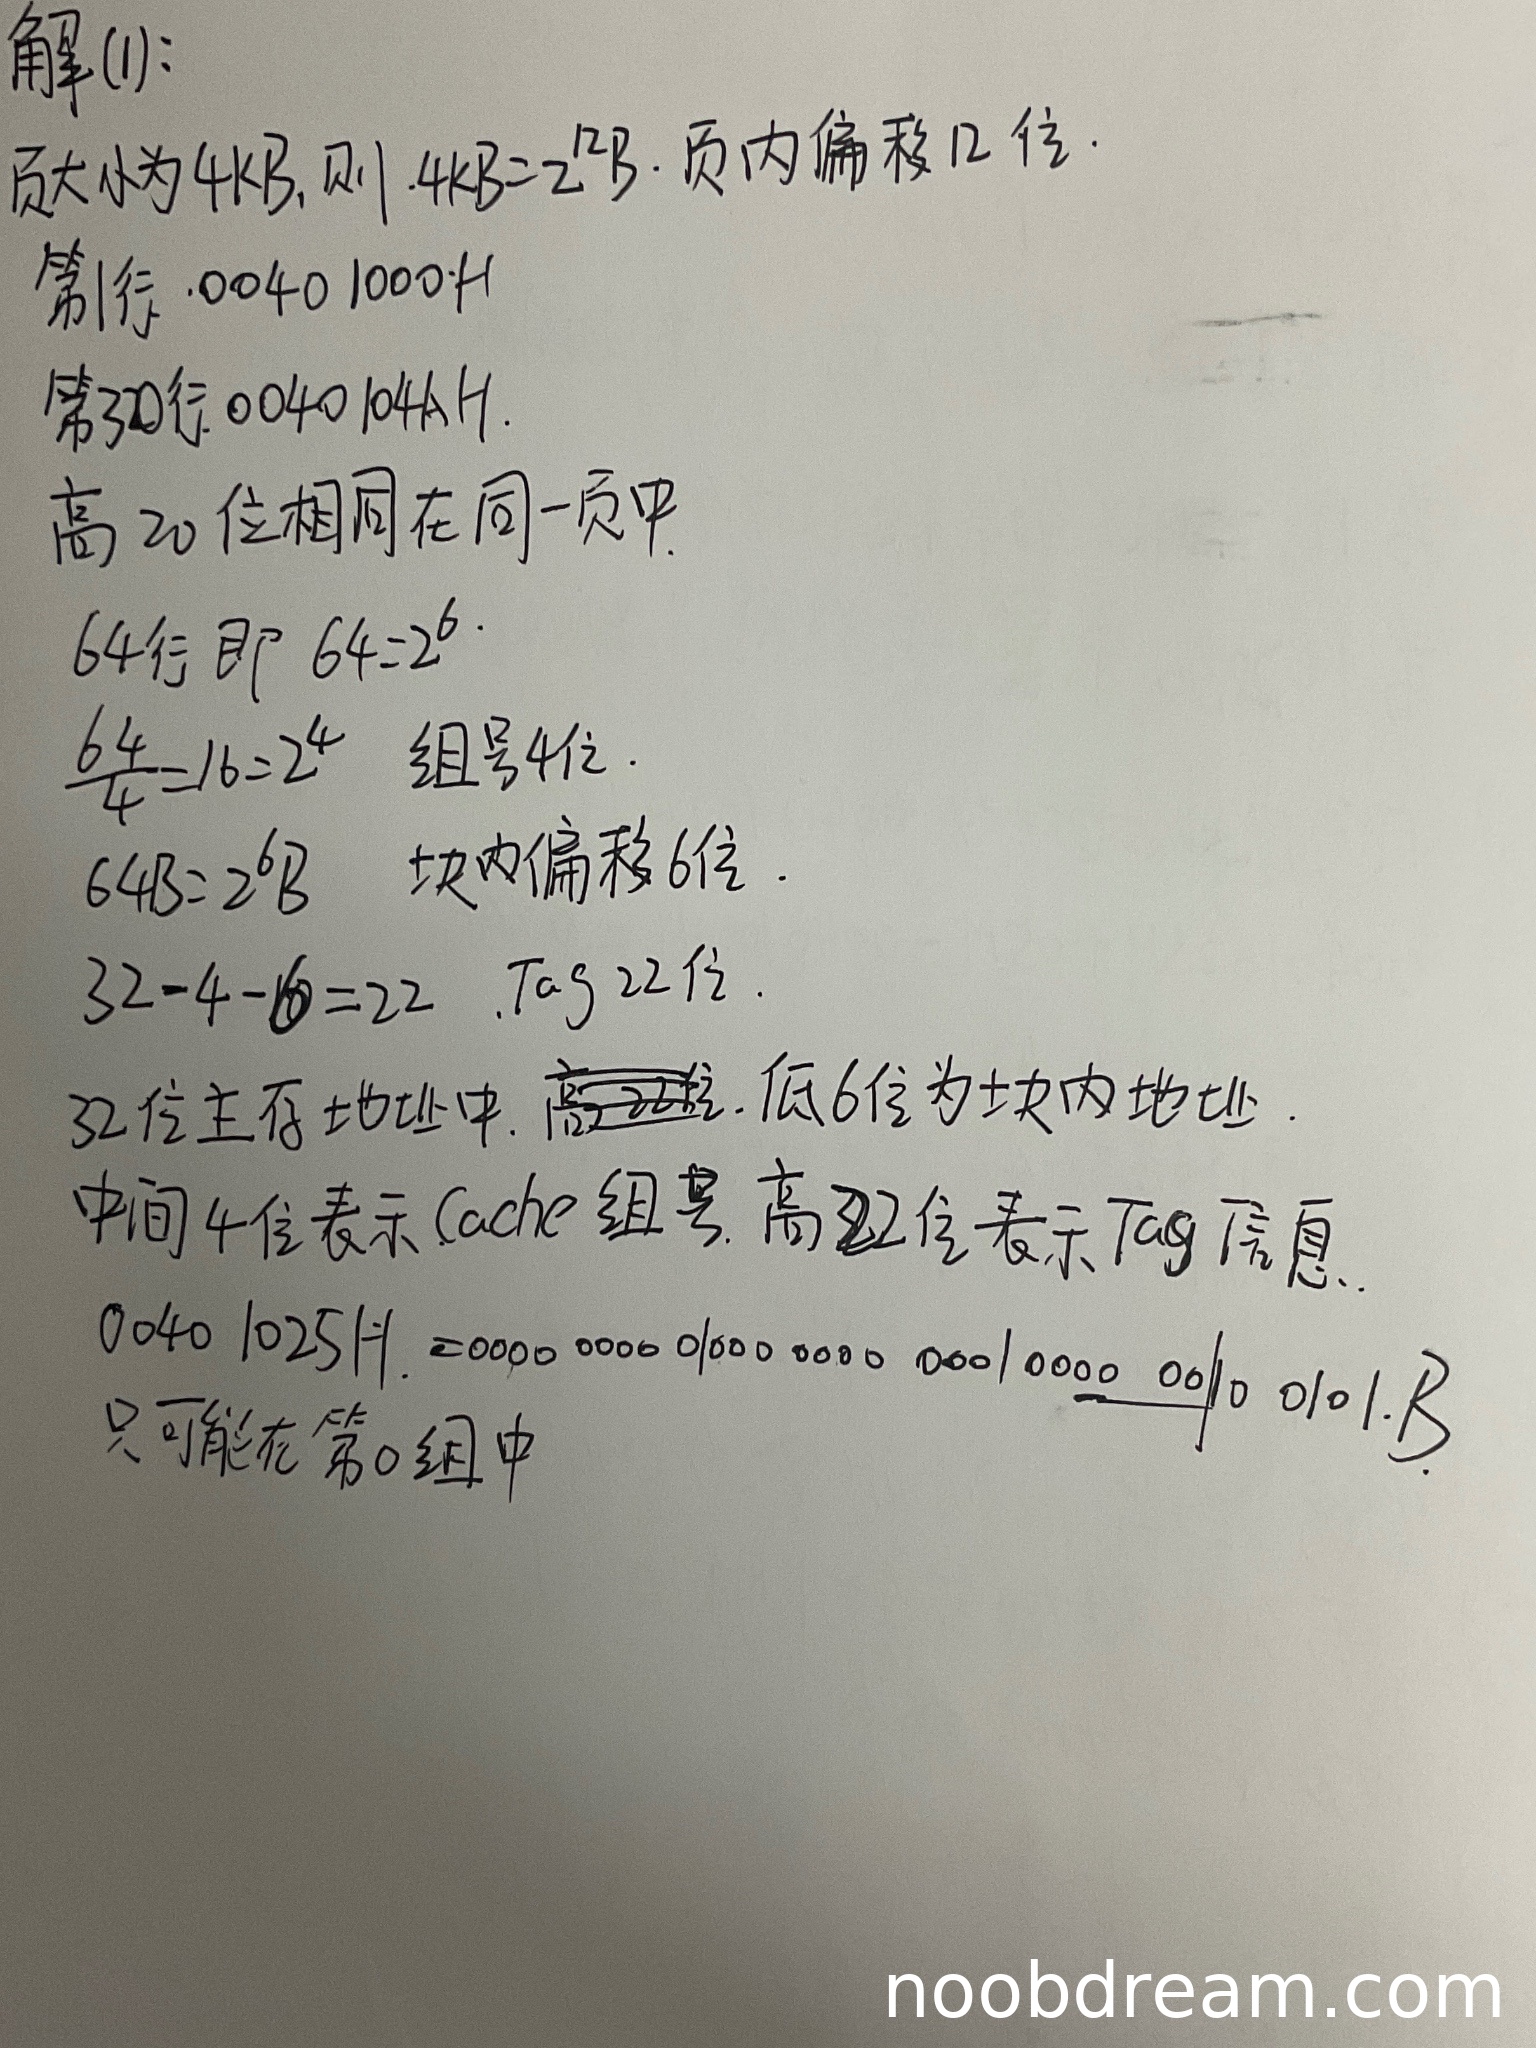 解(1):
页大小为4KB,则.4KB=2^12B.页内偏移12位.
第1行.0040 1000H
第30行.0040 104AH.
高20位相同在同一页中.
64行即 64=2^6.
64/4=16=2^4 组号4位.
64B=2^6B 块内偏移6位.
32-4-6=22 .Tag 22位.
32位主存地址中.低6位为块内地址.
中间4位表示Cache组号.高22位表示Tag信息.
0040 1025H.=0000 0000 0100 0000 0001 0000 0010 0101.B
只可能在第0组中
noobdream.com